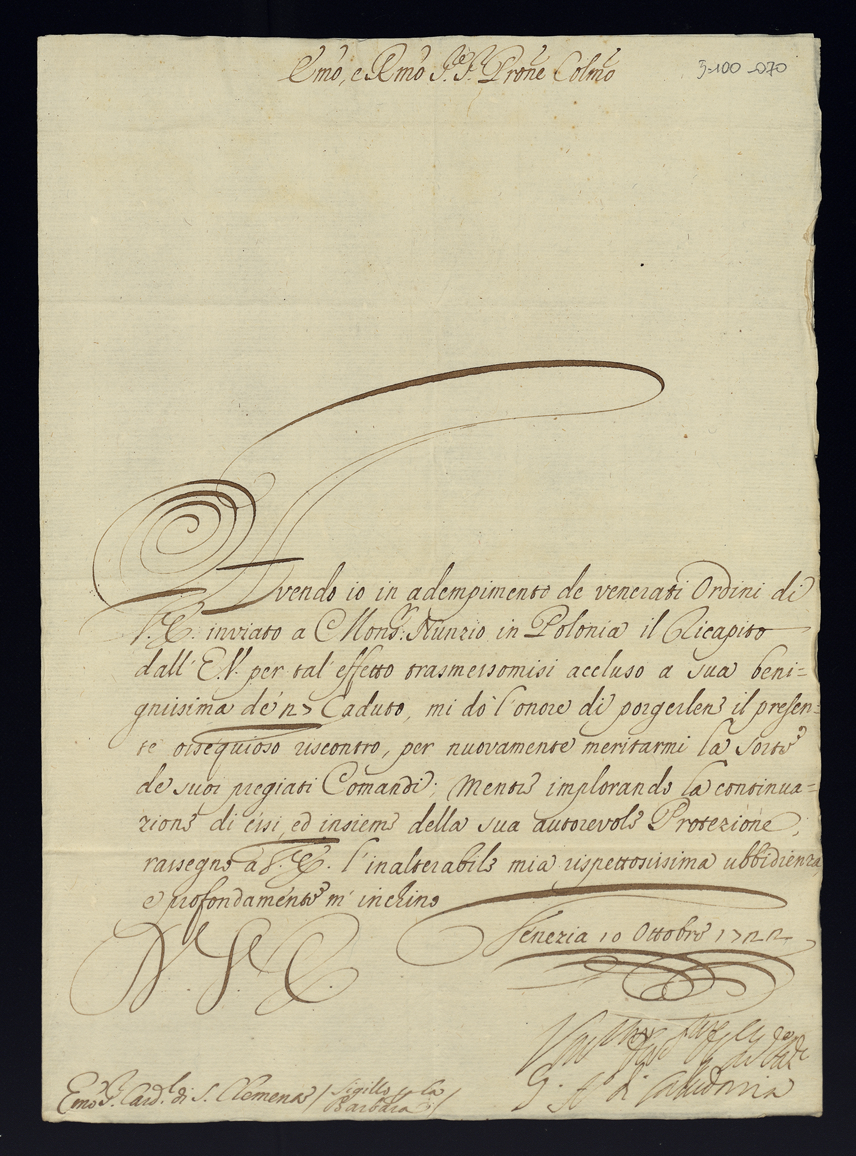 Emo, e Rmo Sr. Sr. Prone Colmo
3-100-070
Avendo io in adempimento de venerati Ordini di
V. E. inviato a Monsr. Nunzio in Polonia il Ricapito
dall' E. V. per tal' effetto trasmessomisi accluso a sua beni=
gnissima de' n 7 Caduto, mi do l'onore di porgerlene il presen=
te ossequioso riscontro, per nuovamente meritarmi la sorte
de suoi pregiati Comandi; Mentre implorando la continua=
zione di essi, ed insieme della sua autorevole Protezione,
rassegno a V. E. l'inalterabile mia rispettosissima ubbidienza
e profondamente m' inchino
Venezia 10 Ottobre 1722
D. V. E.
G. A. di
Emo Sr. Card.le di S. Clemente / Sigillo per la
Barbara /